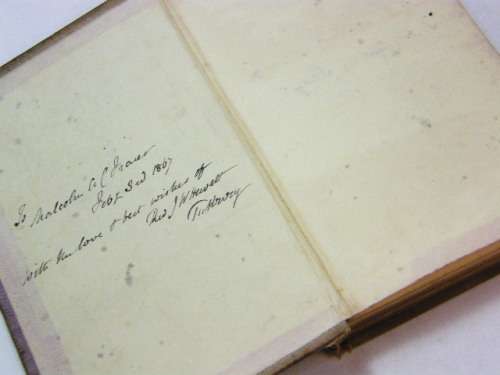 To Malcolm A C Fraser
Feby 3rd 1867
with the love & best wishes of
Revd J W Hewett